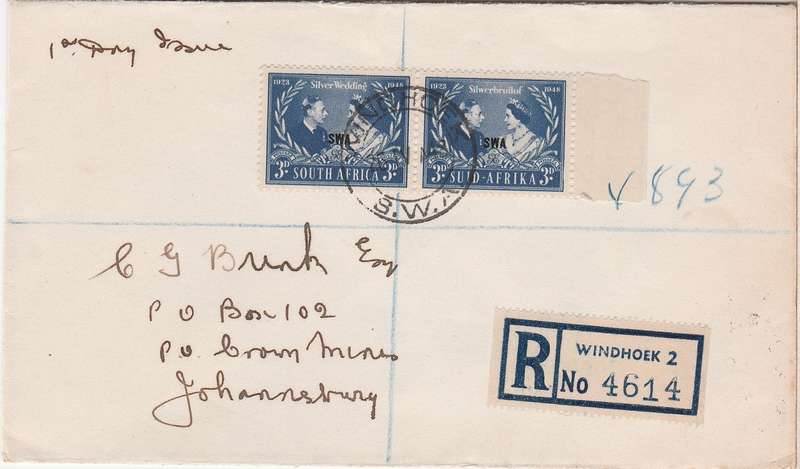 1st Day Issue
1923 Silver Wedding 1948
SWA
POSTAGE
3D SOUTH AFRICA 3D
1923 Silwerbruilof 1948
SWA
3D SUID-AFRIKA 3D
WINDHOEK
S.W.A.
893
C G Brink Esq
P O Box 102
P.O. Crown Mines
Johannesburg
R
WINDHOEK 2
No 4614